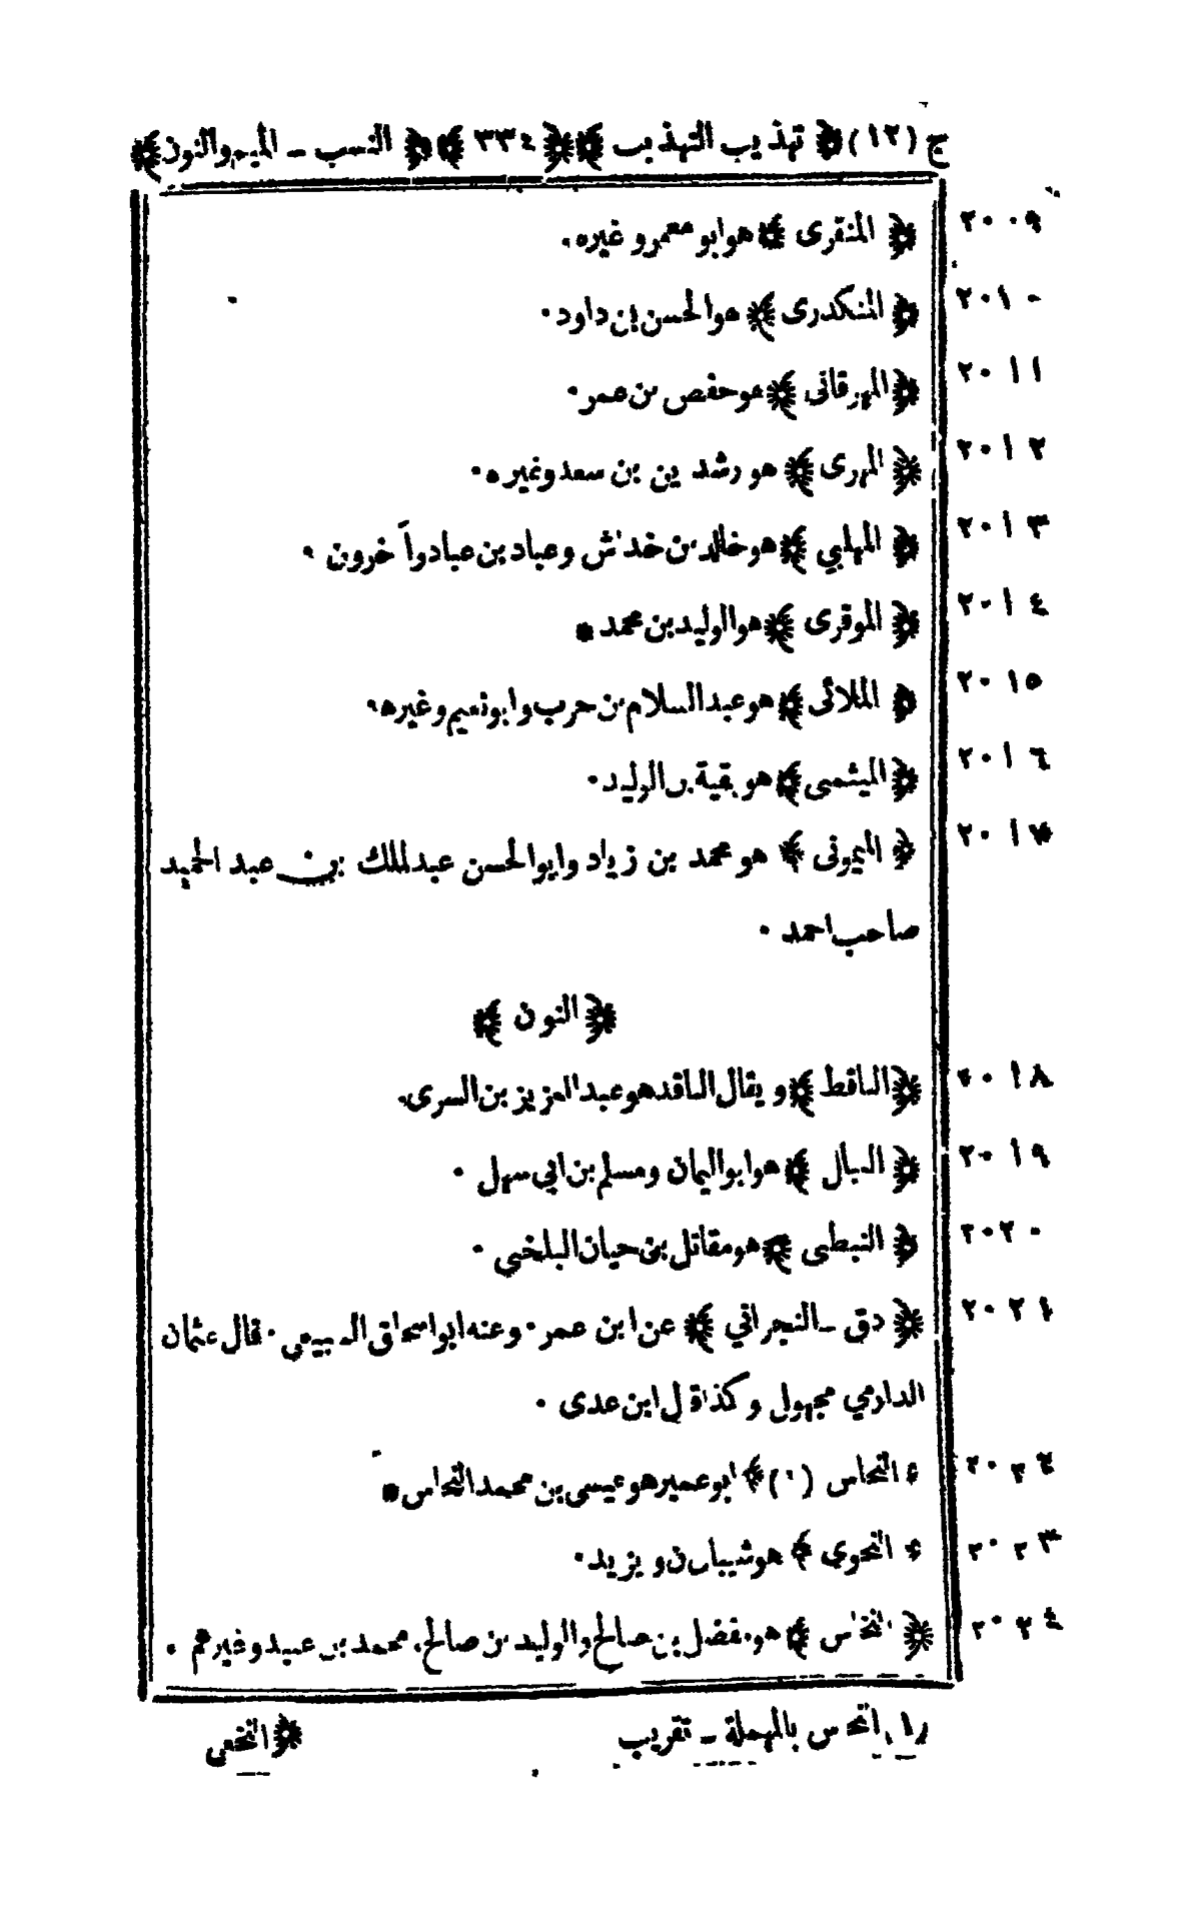 ج (١٢) ﴿ تهذيب التهذيب ﴾ ﴿ ٣٣٤ ﴾ ﴿ النسب ـ الميم والنون ﴾
٢٠٠٩ ﴿ المنقرى ﴾ هو ابو معمر و غيره.
٢٠١٠ ﴿ المنكدرى ﴾ هو الحسن بن داود.
٢٠١١ ﴿ المهرقانى ﴾ هو حفص بن عمر.
٢٠١٢ ﴿ المهرى ﴾ هو رشد ين بن سعد وغيره.
٢٠١٣ ﴿ المهلبي ﴾ هو خالد بن خداش وعباد بن عباد وآخرون.
٢٠١٤ ﴿ الموقرى ﴾ هو الوليد بن محمد *
٢٠١٥ ﴿ الملائى ﴾ هو عبد السلام بن حرب وابو نعيم وغيره.
٢٠١٦ ﴿ الميثمى ﴾ هو بقية بن الوليد.
٢٠١٧ ﴿ الميمونى ﴾ هو محمد بن زياد وابو الحسن عبد الملك بن عبد الحميد
صاحب احمد.
﴿ النون ﴾
٢٠١٨ ﴿ الناقط ﴾ و يقال الناقد هو عبد العزيز بن السرى.
٢٠١٩ ﴿ النبال ﴾ هو ابو اليمان ومسلم بن ابي سهل.
٢٠٢٠ ﴿ النبطى ﴾ هو مقاتل بن حيان البلخي.
٢٠٢١ ﴿ دق ـ النجراني ﴾ عن ابن عمر. وعنه ابو اسحاق السبيعي. قال عثمان
الدارمي مجهول وكذا قال ابن عدى.
٢٠٢٢ ﴿ النحاس (١) ﴾ ابو عمير هو عيسى بن محمد النحاس *
٢٠٢٣ ﴿ النحوي ﴾ هو شيبان و يزيد.
٢٠٢٤ ﴿ النخاس ﴾ هو مفضل بن صالح والوليد بن صالح. محمد بن عبيد وغيرهم.
(١) النحاس بالمهملة ـ تقريب
﴿ النخعي